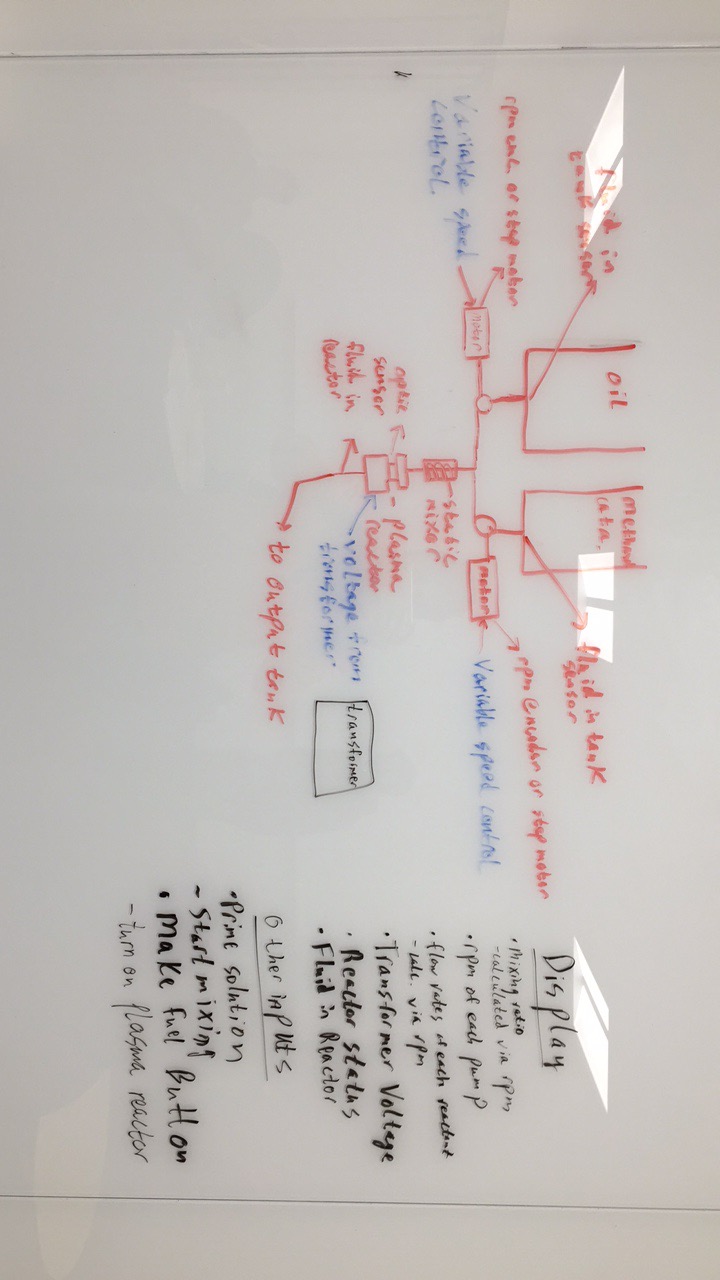 oil
methanol
cata.
fluid in
tank sensor
fluid in tank
sensor
rpm enc. or step motor
rpm encoder or step motor
motor
motor
Variable speed
control
Variable speed control
static
mixer
optic
sensor
plasma
reactor
fluid in
reactor
voltage from
transformer
transformer
to output tank
Display
• Mixing ratio
- calculated via rpm
• rpm of each pump
• flow rates of each reactant
- calc. via rpm
• Transformer Voltage
• Reactor status
• Fluid in Reactor
Other inputs
• Prime solution
- Start mixing
• Make fuel Button
- turn on plasma reactor